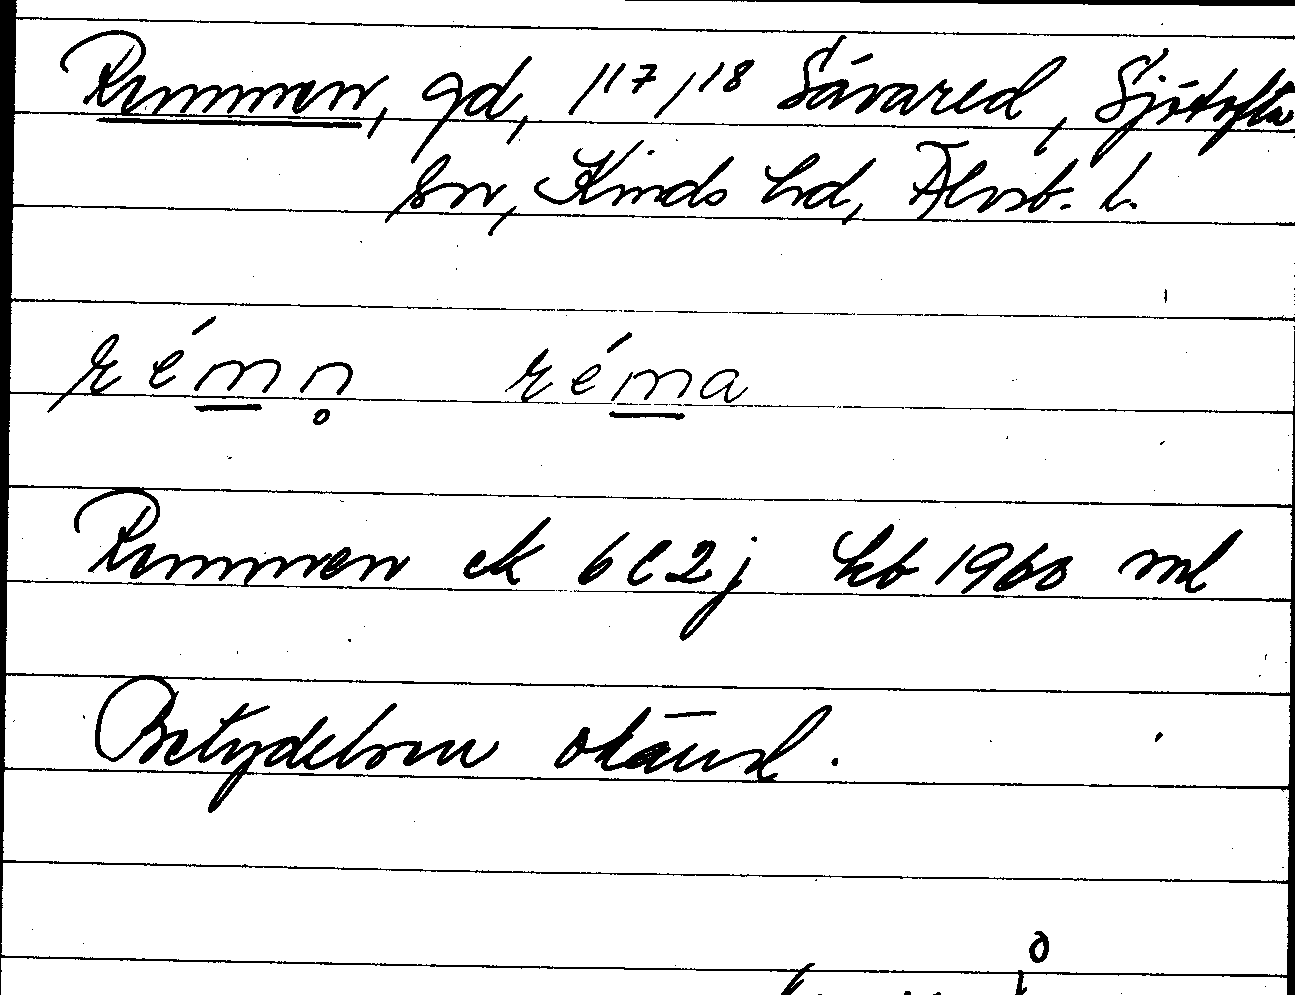 Rummen, gd, 1¹⁷, 1¹⁸ Sävared, Sjötofta
sn, Kinds hd, Älvsb. l.
rémn̥ réma
Rummen ek 6C2j kb 1960 ml
Betydelsen okänd.